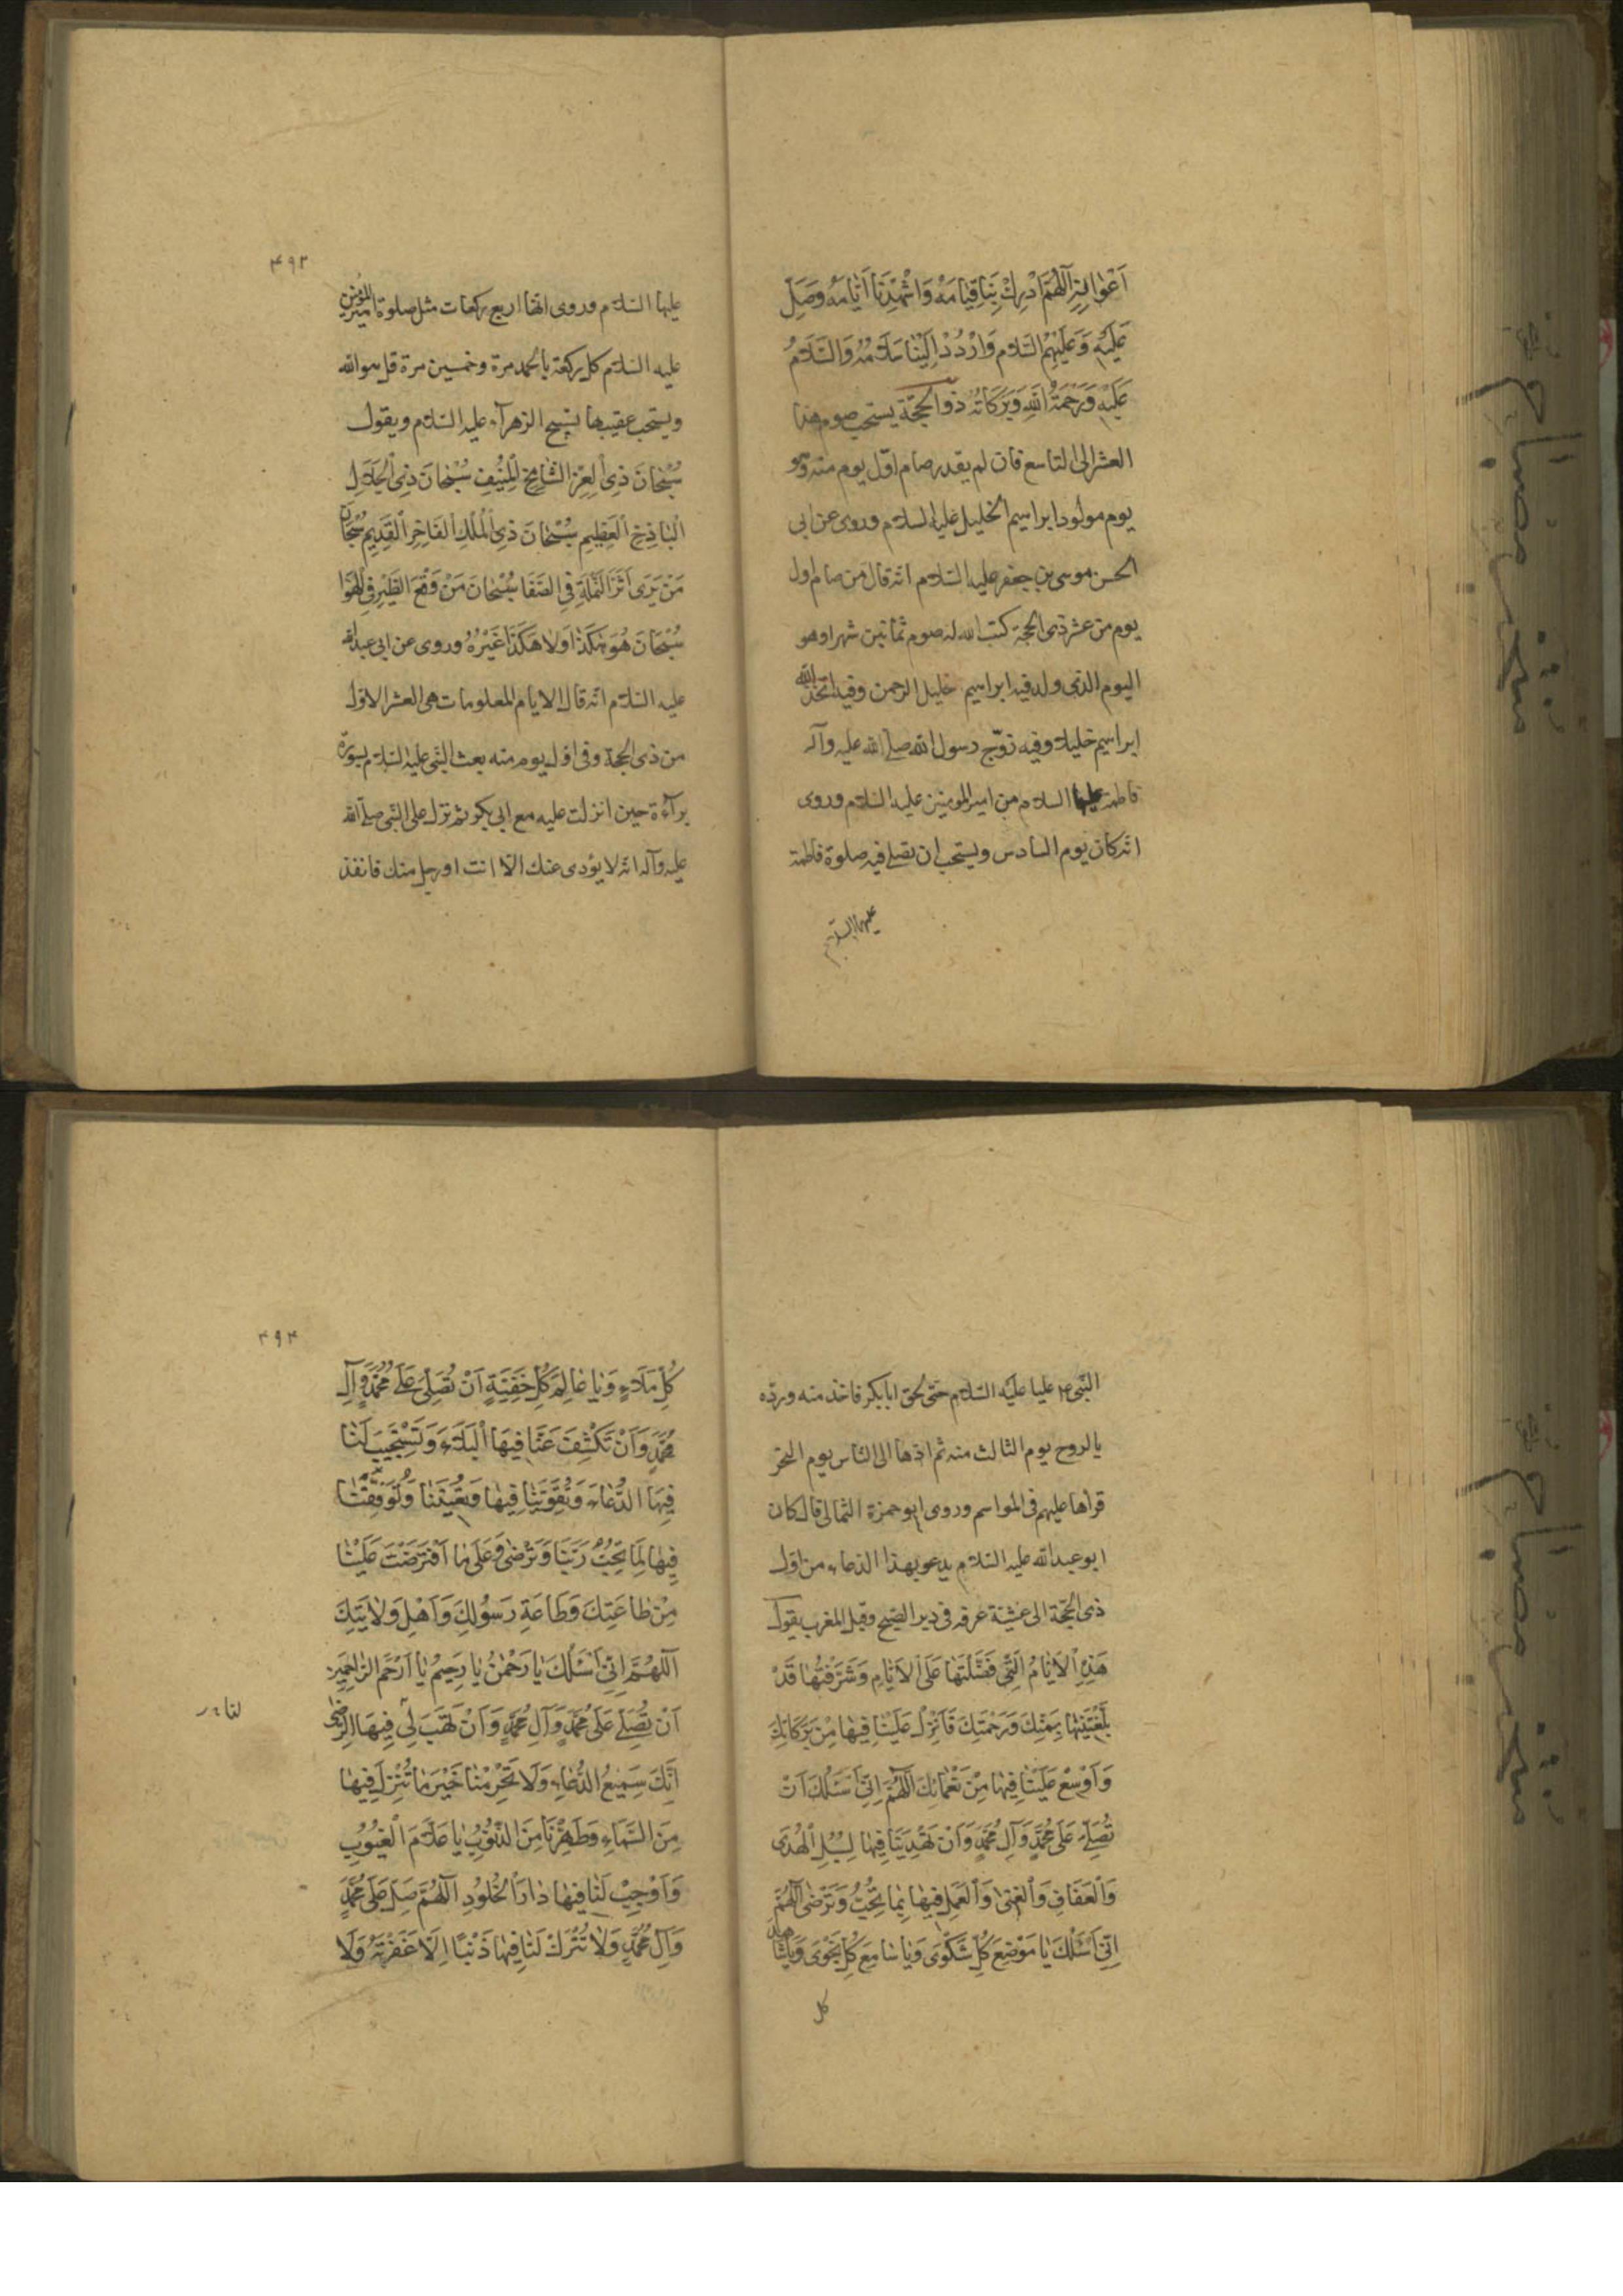 اَعْوانِهِ اَللّهُمَّ اَدْرِكْ بِنا قِيامَهُ وَاشْهِدْنا اَيّامَهُ وَصَلِّ
عَلَيْهِ وَعَلَيْهِمُ السَّلام وَارْدُدْ اِلَيْنا سَلامَهُ وَالسَّلامُ
عَلَيْهِ وَرَحْمَةُ اللهِ وَبَرَكاتُهُ ذو الحجّة يستحب صوم هذا
العشر الى التاسع فان لم يقدر صام اوّل يوم منه وهو
يوم مولود ابراهيم الخليل عليه السلام وروى عن ابى
الحسن موسى بن جعفر عليه السّلام انّه قال من صام اول
يوم من عشر ذى الحجة كتب الله له صوم ثمانين شهرا وهو
اليوم الذى ولد فيه ابراهيم خليل الرحمن وفيه اتّخذ الله
ابراهيم خليلا وفيه زوّج رسول الله صلى الله عليه وآله
فاطمة عليها السلام من امير المومنين عليه السّلام وروى
انّه كان يوم السادس ويستحب ان يصلى فيه صلوة فاطمة
عليها السلام
۴۹۳
عليها السّلام وروى انّها اربع ركعات مثل صلوة امير المومنين
عليه السّلام كل ركعة بالحمد مرة وخمسين مرة قل هو الله
ويستحب عقيبها بتسبيح الزهرآء عليه السّلام ويقول
سُبْحانَ ذِى الْعِزِّ الشّامِخِ الْمُنيفِ سُبْحانَ ذِى الْجَلالِ
الْباذِخِ الْعَظيمِ سُبْحانَ ذِى الْمُلْكِ الْفاخِرِ الْقَديمِ سُبْحانَ
مَنْ يَرى اَثَرَ النَّمْلَةِ فِى الصَّفا سُبْحانَ مَنْ وَقْعَ الطَّيْرِ فِى الْهَوا
سُبْحانَ هُوَ هكَذا وَلا هكَذا غَيْرُهُ وروى عن ابى عبد الله
عليه السّلام انّه قال الايام المعلومات هى العشر الاوّل
من ذى الحجة وفى اول يوم منه بعث النّبى عليه السّلام بسورة
برآءة حين انزلت عليه مع ابى بكر ثم نزل على النّبى صلى الله
عليه وآله انّه لا يؤدى عنك الّا انت او رجل منك فانفذ
النّبى ع م عليا عليه السّلام حتى لحق ابابكر فاخذ منه وردّه
بالروح يوم الثالث منه ثم اذها الى النّاس يوم النحر
قراها عليهم فى المواسم وروى ابو حمزة الثمالى قال كان
ابو عبد الله عليه السّلام يدعو بهذا الدّعاء من اوّل
ذى الحجّة الى عشيّة عرفه فى دبر الصّبح وقبل المغرب يقول
هذِهِ الْاَيّامُ الَّتى فَضَّلْتَها عَلَى الْاَيّامِ وَشَرَّفْتَها قَدْ
بَلَّغْتَنيها بِمَنِّكَ وَرَحْمَتِكَ فَاَنْزِلْ عَلَيْنا فيها مِنْ بَرَكاتِكَ
وَاَوْسِعْ عَلَيْنا فيها مِنْ نَعْمائِكَ اَللّهُمَّ اِنّى اَسْئَلُكَ اَنْ
تُصَلِّىَ عَلى مُحَمَّدٍ وَآلِ مُحَمَّدٍ وَاَنْ تَهْدِيَنا فيها لِسُبُلِ الْهُدى
وَالْعَفافِ وَالْغِنى وَالْعَمَلِ فيها بِما تُحِبُّ وَتَرْضى اَللّهُمَّ
اِنّى اَسْئَلُكَ يا مَوْضِعَ كُلِّ شَكْوى وَيا سامِعَ كُلِّ نَجْوى وَيا شاهِدَ
كل
۴۹۴
كُلِّ مَلَاءٍ وَيا عالِمَ كُلِّ خَفِيَّةٍ اَنْ تُصَلِّىَ عَلى مُحَمَّدٍ وَآلِ
مُحَمَّدٍ وَاَنْ تَكْشِفَ عَنّا فيهَا الْبَلاءَ وَتَسْتَجيبَ لَنا
فيهَا الدُّعاءَ وَتُقَوِّيَنا فيها وَتُعينَنا وَتُوَفِّقَنا
فيها لِما تُحِبُّ رَبَّنا وَتَرْضى وَعَلى ما اَفْتَرَضْتَ عَلَيْنا
مِنْ طاعَتِكَ وَطاعَةِ رَسُولِكَ وَاَهْلِ وَلايَتِكَ
اَللّهُمَّ اِنّى اَسْئَلُكَ يا رَحْمنُ يا رَحيمُ يا اَرْحَمَ الرّاحِمينَ
اَنْ تُصَلِّىَ عَلى مُحَمَّدٍ وَآلِ مُحَمَّدٍ وَاَنْ تَهَبَ لى فيهَا الرِّضى
لنا
اِنَّكَ سَميعُ الدُّعاءِ وَلا تَحْرِمْنا خَيْرَ ما تُنْزِلُ فيها
مِنَ السَّماءِ وَطَهِّرْنا مِنَ الذُّنُوبِ يا عَلّامَ الْغُيُوبِ
وَاَوْجِبْ لَنا فيها دارَ الْخُلُودِ اَللّهُمَّ صَلِّ عَلى مُحَمَّدٍ
وَآلِ مُحَمَّدٍ وَلا تَتْرُكْ لَنا فيها ذَنْبًا اِلّا غَفَرْتَهُ وَلا